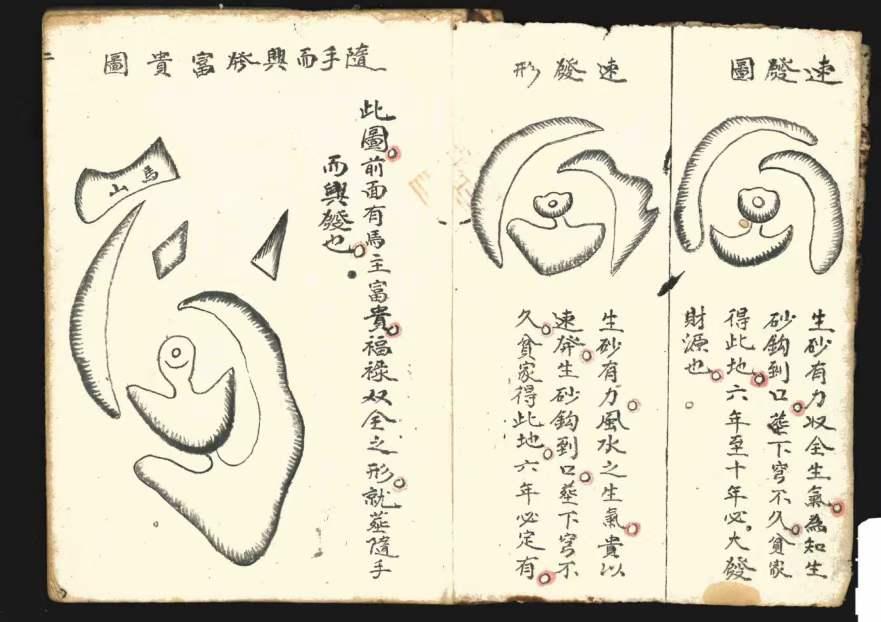 速發圖
生砂有力収全生氣為知生
砂鈎到口塟下穹不久貧家
得此地六年至十年必大發
財源也
速發形
生砂有力風水之生氣貴以
速發生砂鈎到口塟下穹不
久貧家得此地六年必定有
隨手而興發富貴圖
此圖前面有馬主富貴福祿双全之形就塟隨手
而興發也
馬山
二